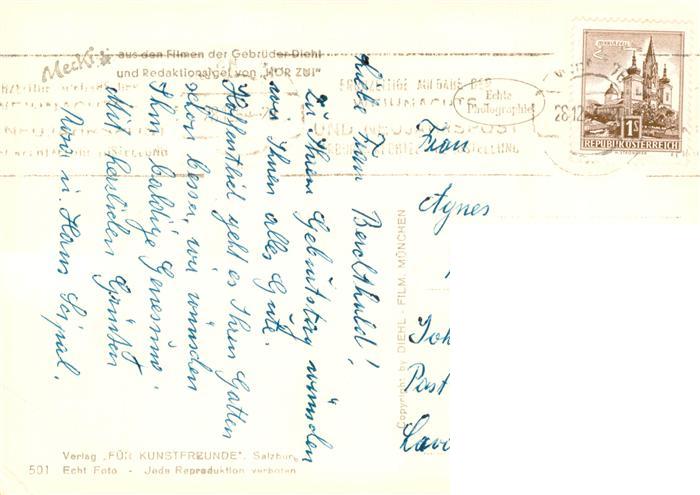 Mecki
aus den Filmen der Gebrüder Diehl
und Redaktionsigel von "HÖR ZU!"
Echte
Photographie
28.12
1S
REPUBLIK ÖSTERREICH
UND NEUJAHRSPOST
Liebe Frau Berchthold!
Zu Ihrem Geburtstag wünschen
wir Ihnen alles Gute.
Hoffentlich geht es Ihren Gatten
schon besser, wir wünschen
Ihm baldige Genesung.
Mit herzlichen Grüßen
u. Hans
Frau
Agnes
Joh
Post
Lava
Copyright by DIEHL - FILM, MÜNCHEN
Verlag „FÜR KUNSTFREUNDE", Salzburg
501 Echt Foto - Jede Reproduktion verboten